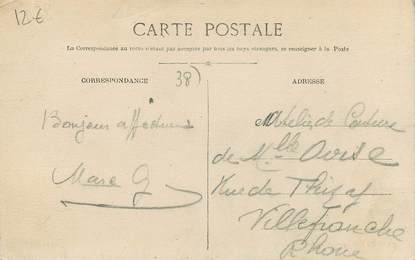 12€
CARTE POSTALE
La Correspondance au verso n'étant pas acceptée par tous les pays étrangers, se renseigner à la Poste
CORRESPONDANCE
38)
ADRESSE
Bonjour affectueux
Marc G
Atelier de Couture
de Mlle
Rue de Thizy
Villefranche
Rhône